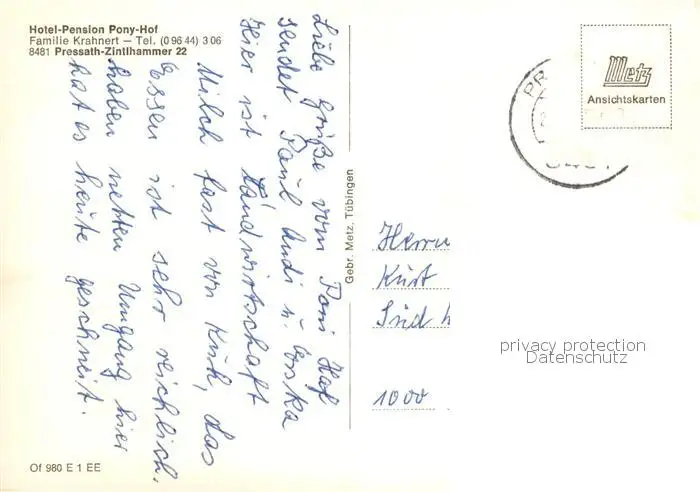 Hotel-Pension Pony-Hof
Familie Krahnert – Tel. (0 96 44) 3 06
8481 Pressath-Zintlhammer 22
Liebe Grüße vom Poni Hof
sendet Paul Andi u.
Hier ist Landwirtschaft
Milch fast von Kuh, das
Essen ist sehr reichlich.
haben netten Umgang hier
hat es heute geschneit.
Gebr. Metz, Tübingen
Metz
Ansichtskarten
PR
Herrn
Kurt
Süd
1000
privacy protection
Datenschutz
Of 980 E 1 EE